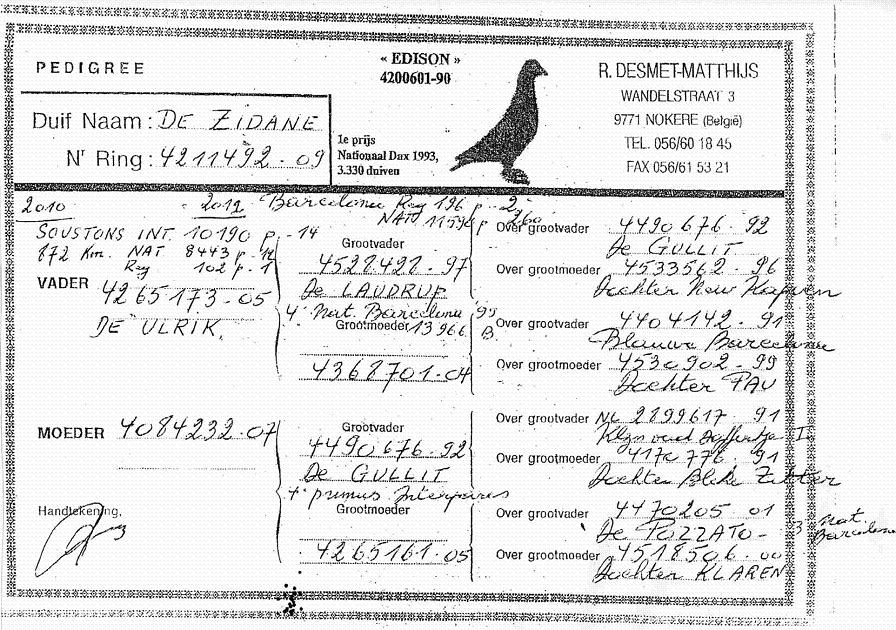 PEDIGREE
« EDISON »
4200601-90
R. DESMET-MATTHIJS
WANDELSTRAAT 3
9771 NOKERE (België)
TEL. 056/60 18 45
FAX 056/61 53 21
Duif Naam: DE ZIDANE
Nr Ring: 4211492-09
1e prijs
Nationaal Dax 1993,
3.330 duiven
2010 - 2012 Barcelona Reg 196 p - 2
NAT 11596 p 260
SOUSTONS INT. 10190 p. - 14
872 Km. NAT 8443 p - 12
Reg 102 p - 1
VADER 4265173-05
DE ULRIK
Grootvader
4528428-97
De LAUDRUP
4e Nat. Barcelona '99
Grootmoeder 13966 B.
4368701-04
Over grootvader 4490676-92
De GULLIT
Over grootmoeder 4533562-96
Dochter New
Over grootvader 4404142-91
Blauwe Barcelona
Over grootmoeder 4530902-99
Dochter PAU
MOEDER 4084232-07
Grootvader
4490676-92
De GULLIT
+ primus Interpaires
Grootmoeder
4265161-05
Over grootvader NL 2899617-91
Over grootmoeder 4170776-91
Dochter Bleke
Over grootvader 4470205-01
De POZZATO - 3 Nat. Barcelona
Over grootmoeder 4518506-00
Dochter KLAREN
Handtekening,